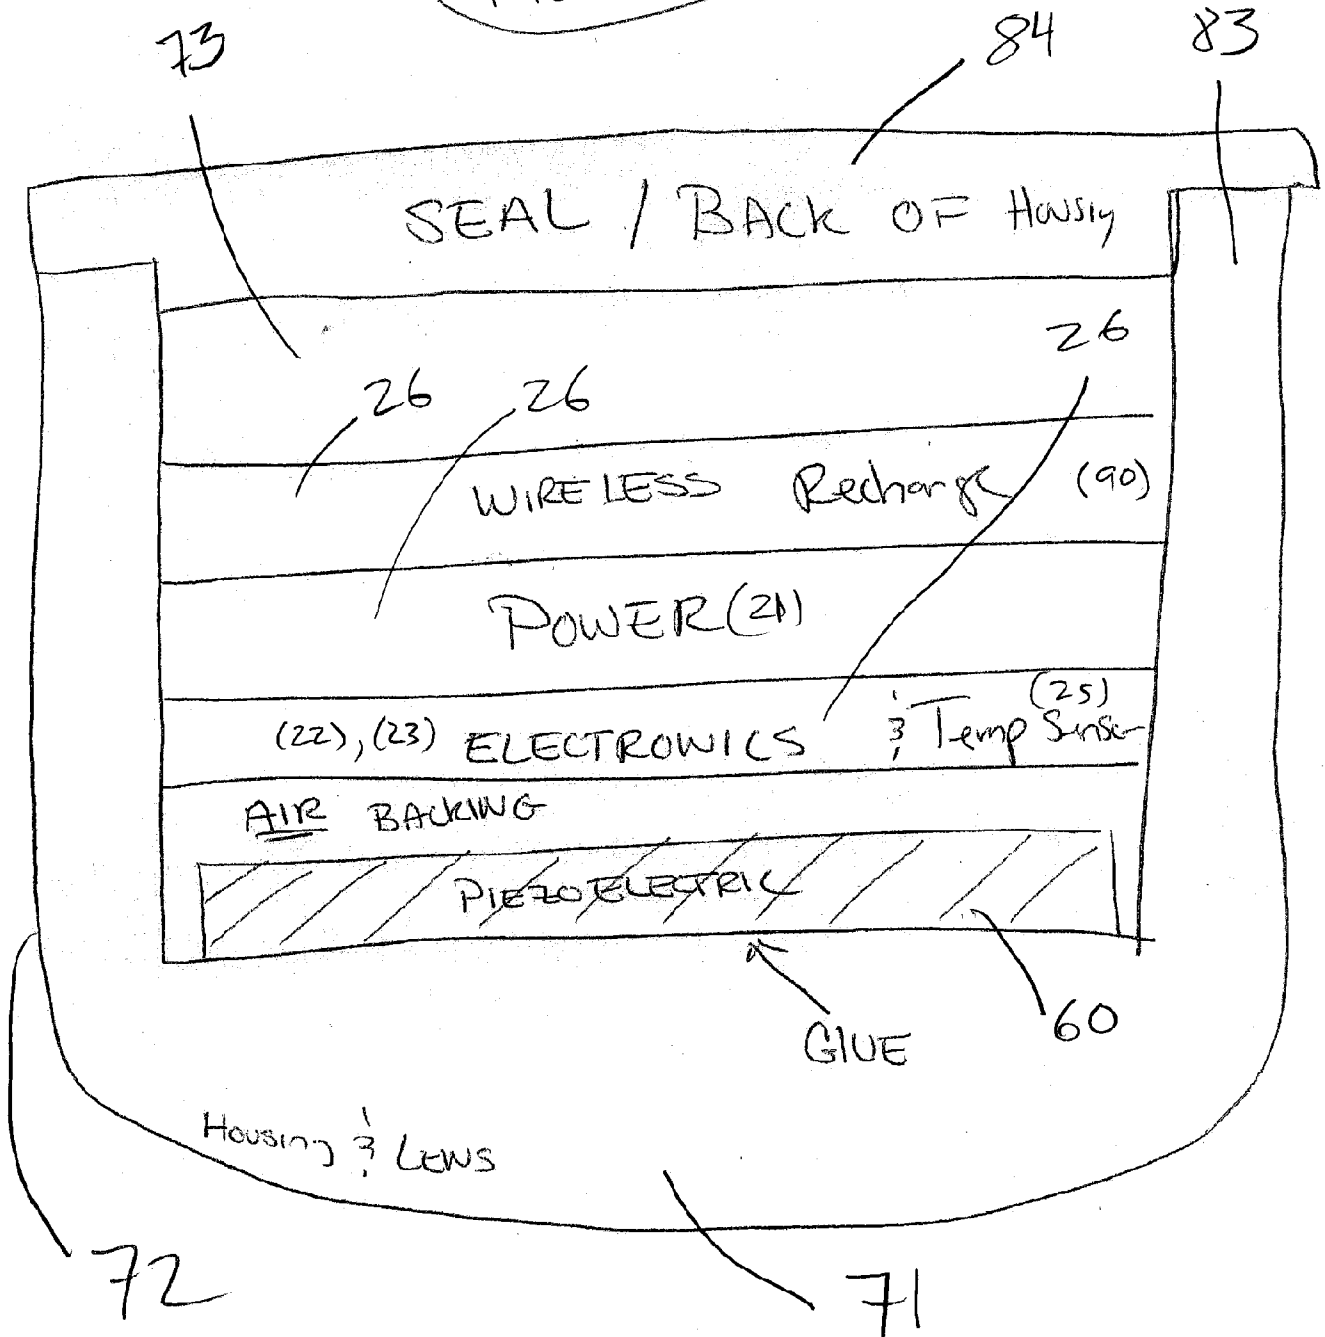 73
84
83
SEAL / BACK OF Housing
26
26 26
WIRELESS Recharge (90)
POWER (21)
(25)
(22), (23) ELECTRONICS & Temp Sensor
AIR BACKING
PIEZOELECTRIC
60
GLUE
Housing & LENS
72
71